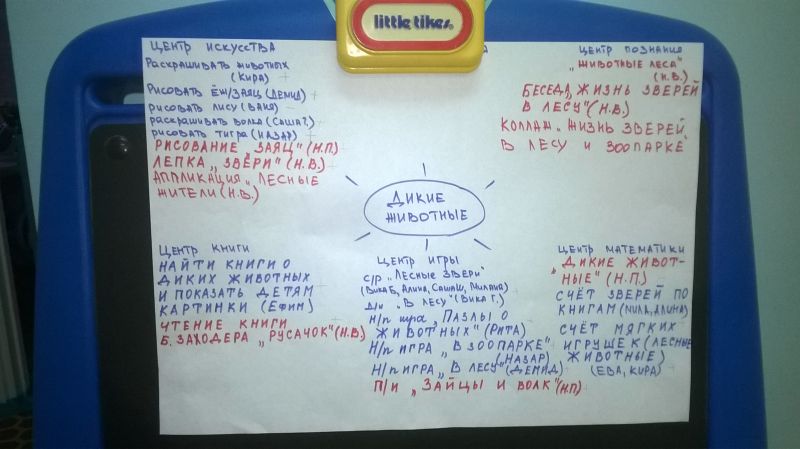 little tikes
ЦЕНТР ИСКУССТВА
Раскрашивать животных
(КИРА)
Рисовать ЁЖ/ЗАЯЦ (ДЕМИД)
рисовать лису (ВАНЯ)
раскрашивать волка (САША Г.)
рисовать тигра (НАЗАР)
РИСОВАНИЕ „ЗАЯЦ" (Н.П.)
ЛЕПКА „ЗВЕРИ" (Н.В.)
АППЛИКАЦИЯ „ЛЕСНЫЕ
ЖИТЕЛИ (Н.В.)
ЦЕНТР ПОЗНАНИЯ
„ЖИВОТНЫЕ ЛЕСА"
(Н.В.)
БЕСЕДА „ЖИЗНЬ ЗВЕРЕЙ
В ЛЕСУ" (Н.В.)
КОЛЛАЖ „ЖИЗНЬ ЗВЕРЕЙ
В ЛЕСУ И ЗООПАРКЕ"
ДИКИЕ
ЖИВОТНЫЕ
ЦЕНТР КНИГИ
НАЙТИ КНИГИ О
ДИКИХ ЖИВОТНЫХ
И ПОКАЗАТЬ ДЕТЯМ
КАРТИНКИ (ЕФИМ)
ЧТЕНИЕ КНИГИ
Б. ЗАХОДЕРА „РУСАЧОК" (Н.В.)
ЦЕНТР ИГРЫ
С/Р „ЛЕСНЫЕ ЗВЕРИ"
(ВИКА Б, АЛИНА, САША Ш, МИЛАНА)
Д/И „В ЛЕСУ" (ВИКА Г.)
Н/П игра „ПАЗЛЫ О
ЖИВОТНЫХ" (РИТА)
Н/П ИГРА „В ЗООПАРКЕ"
(НАЗАР)
Н/П ИГРА „В ЛЕСУ" (ДЕМИД)
П/И „ЗАЙЦЫ И ВОЛК" (Н.П)
ЦЕНТР МАТЕМАТИКИ
„ДИКИЕ ЖИВОТ-
НЫЕ" (Н.П.)
СЧЁТ ЗВЕРЕЙ ПО
КНИГАМ (ДИМА)
СЧЁТ МЯГКИХ
ИГРУШЕК (ЛЕСНЫЕ
ЖИВОТНЫЕ)
(ЕВА, КИРА)